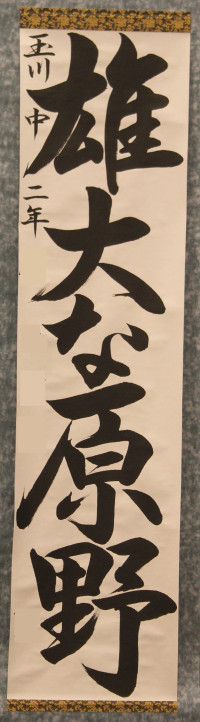 雄大な原野
玉川中二年